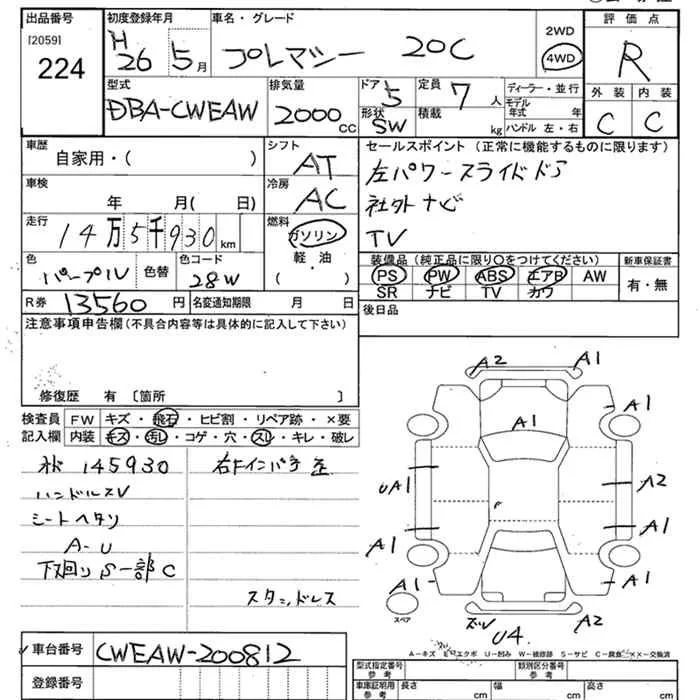 出品番号
[2059]
224
初度登録年月
H
26 5月
車名・グレード
プレマシー 20C
2WD
4WD
評価点
R
外装 内装
C C
型式
DBA-CWEAW
排気量
2000cc
ドア
5
形状
SW
定員
7人
積載
kg
ディーラー・並行
モデル年式 年
ハンドル 左・右
車歴
自家用・( )
シフト
AT
冷房
AC
車検
年 月( 日)
走行
14万5千930km
燃料
ガソリン
軽・油
( )
色
パープル
色替
色コード
28W
R券 13560円
名変通知期限 月 日
セールスポイント(正常に機能するものに限ります)
左パワースライドドア
社外ナビ
TV
装備品(純正品に限り〇をつけてください)
PS PW ABS エアB AW
SR ナビ TV カワ
新車保証書
有・無
後日品
注意事項申告欄(不具合内容等は具体的に記入して下さい)
修復歴 有 〔箇所 〕
検査員記入欄
FW キズ・飛石・ヒビ割・リペア跡・×要
内装 キズ・汚レ・コゲ・穴・スレ・キレ・破レ
145930
ハンドルスV
シートヘタリ
A-U
下廻りS一部C
スタッドレス
A2 A1
A1
A1
UA1
A2
A1
A1
A1
A1
A2
U4
スペア
A-キズ E-エクボ U-凹み W-補修跡 S-サビ C-腐食 ××-交換済
車台番号 CWEAW-200812
登録番号
型式指定番号 参考
類別区分番号 参考
車庫証明用 参考
長さ cm
幅 cm
高さ cm